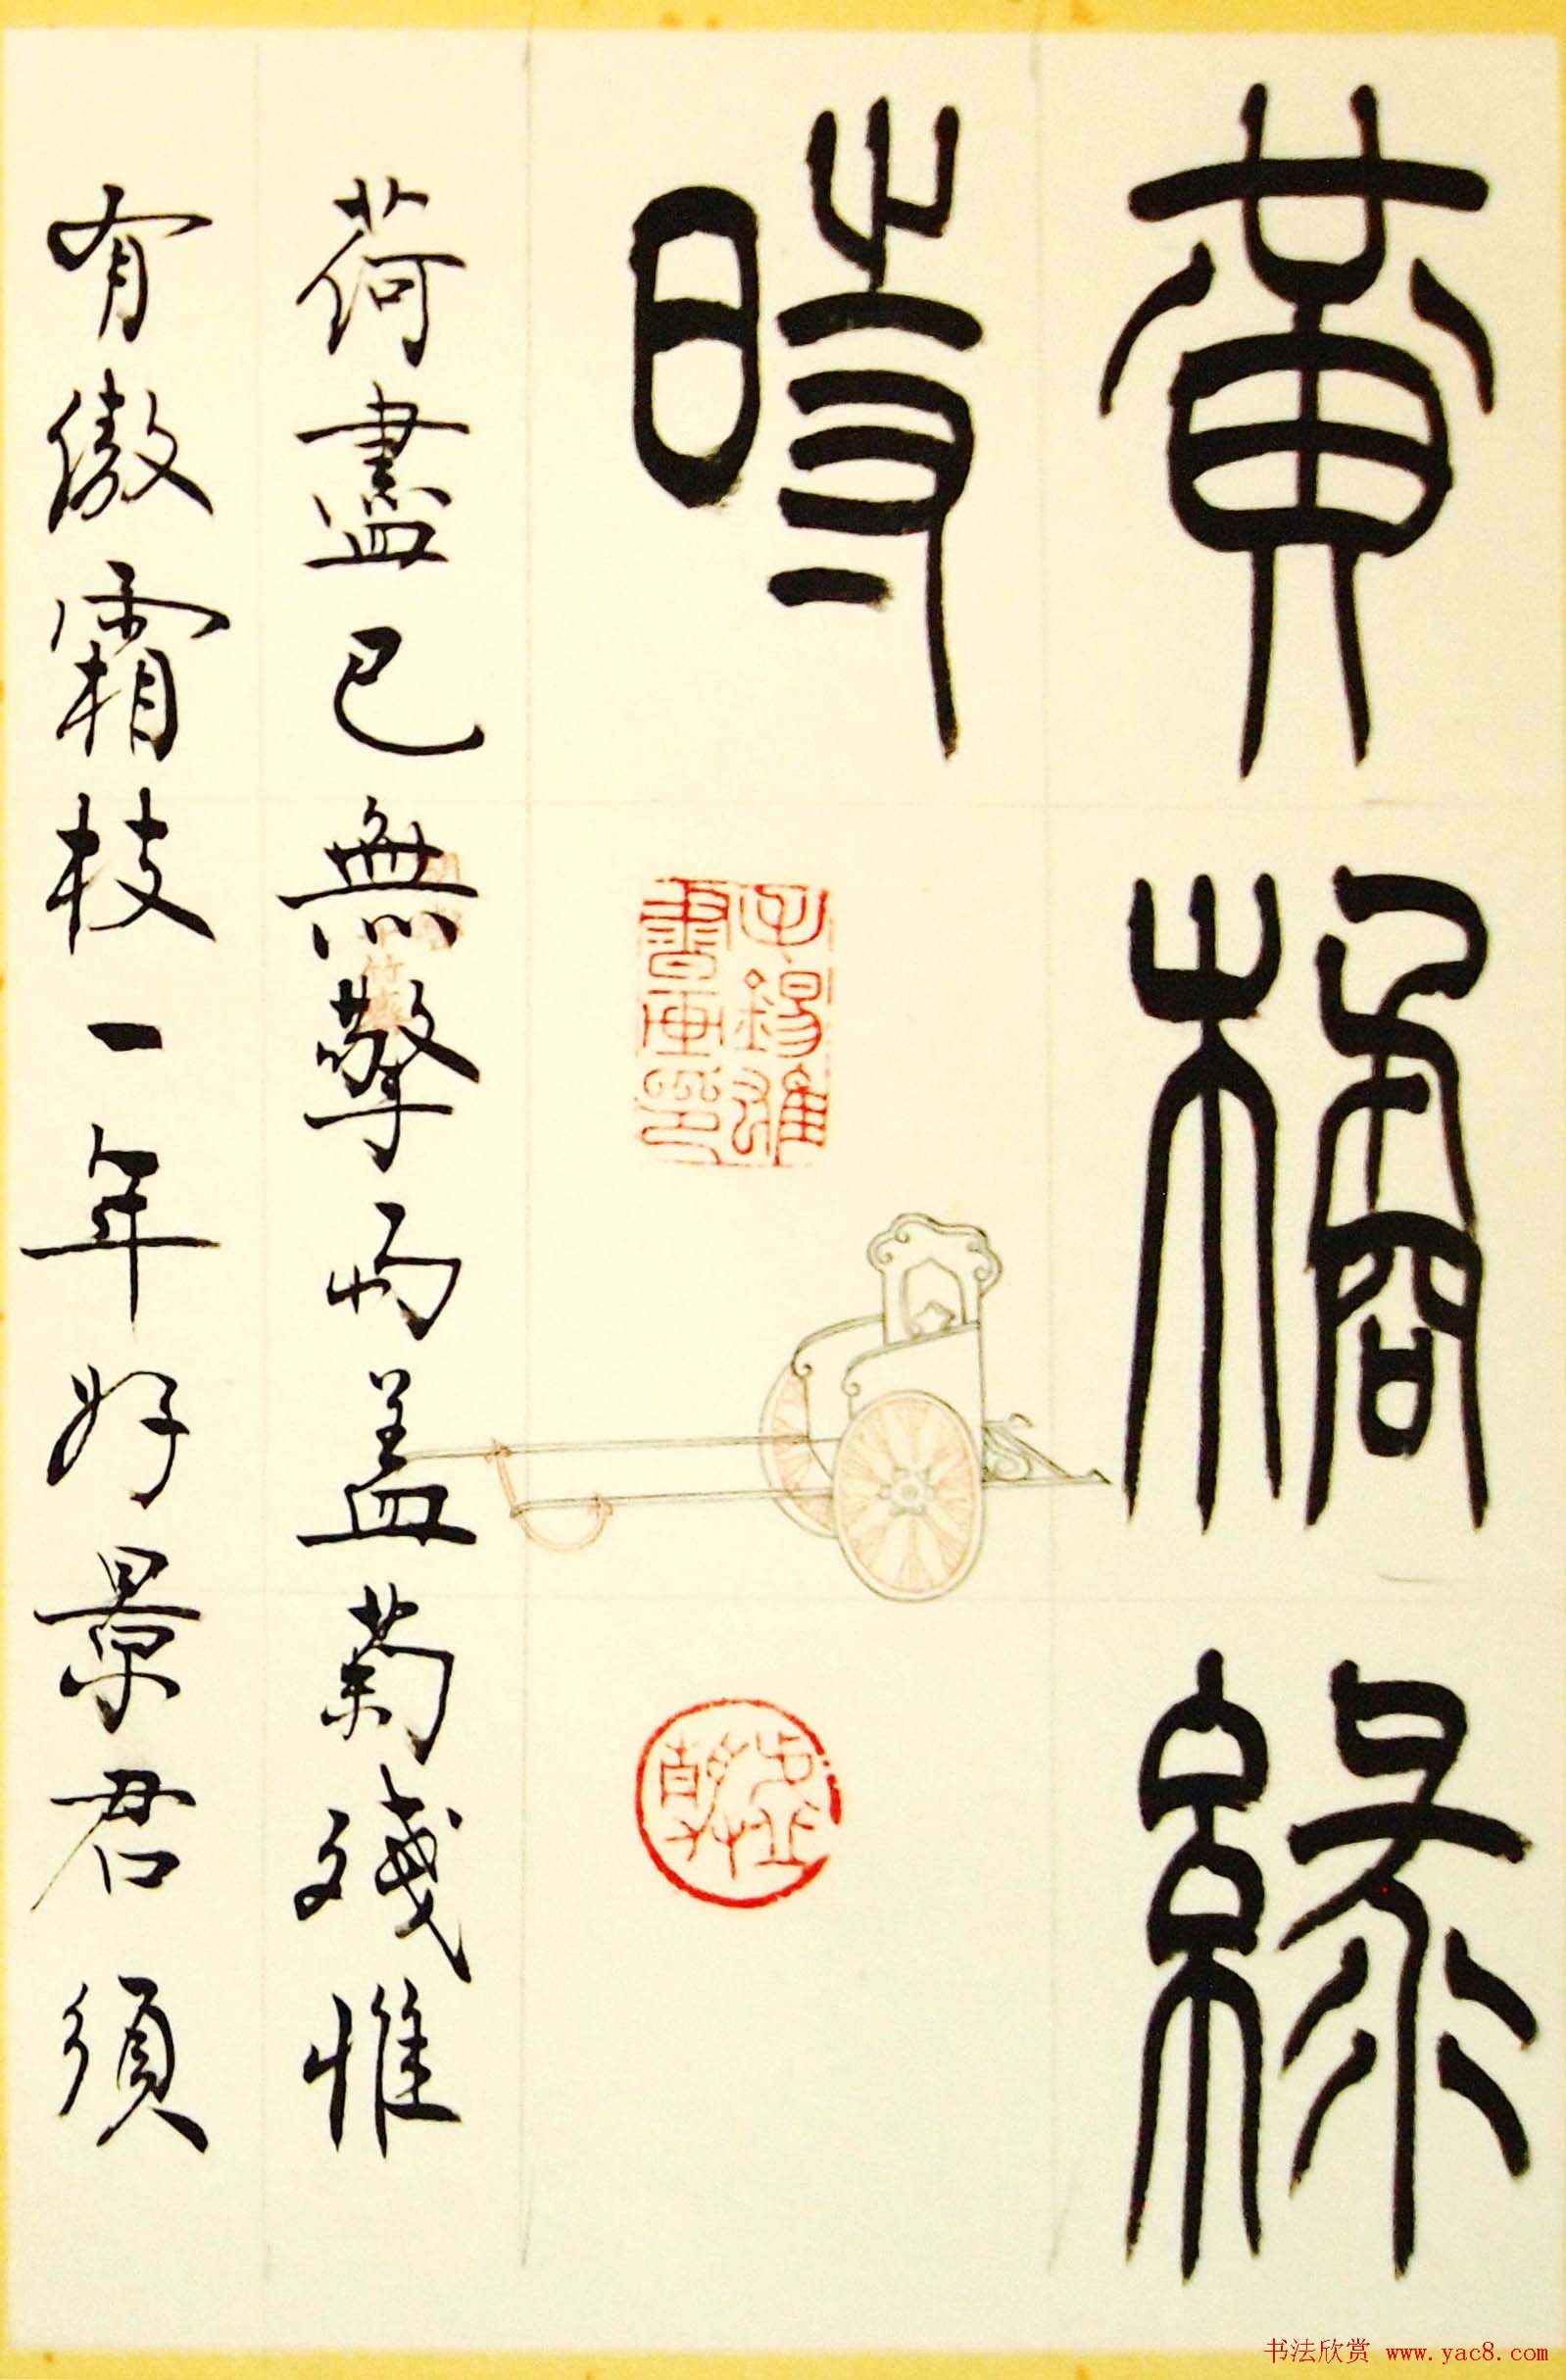 黄橘綠
時
荷盡已無擎雨蓋菊殘惟
有傲霜枝一年好景君須
書画印
书法欣赏 www.yac8.com